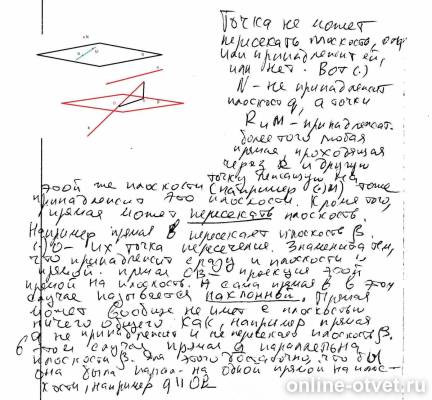 Точка не может
пересекать плоскость, она
или принадлежит ей,
или нет. Вот (·)
N - не принадлежит
плоскост α, а точки
R и M - принадлежат
более того любая
прямая, проходящая
через R и другую
точку лежащую на
этой же плоскости (например (·)M) тоже
принадлежит этой плоскости. Кроме того,
прямая может пересекать плоскость.
Например прямая в пересекает плоскость β.
(·) O - их точка пересечения. Знаменита тем,
что принадлежит сразу и плоскости и
прямой. прямая CB - проекция этой
прямой на плоскость. А сама прямая в в этом
случае называется наклонной. Прямая
может вообще не имет с плоскостью
ничего общего как, например прямая
a не принадлежит и не пересекает плоскость β.
В этом случае прямая a паралельна
плоскости β. Для этого достаточно, что бы
она была парал-на одной прямой на плос-
кости, например a || OB
online-otvet.ru